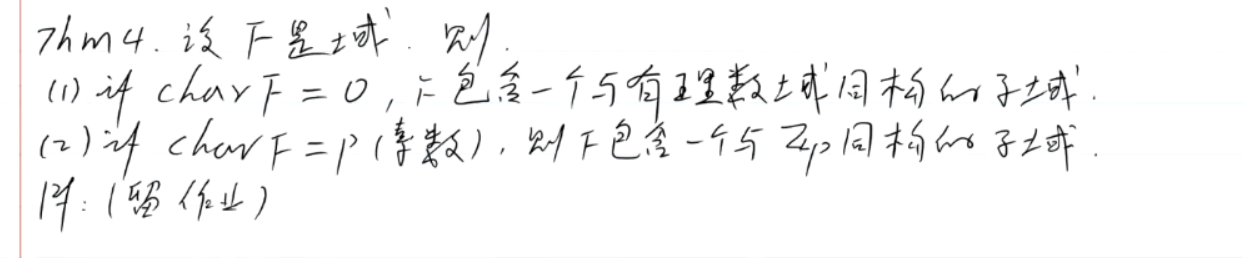 Thm4. 设 F 是域. 则.
(1) if char F = 0, F 包含一个与有理数域同构的子域.
(2) if char F = p (素数), 则 F 包含一个与 Zp 同构的子域.
pf: (留作业)